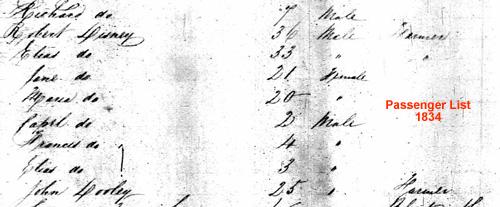 Richard do 7 Male
Robert Disney 36 Male Farmer
Elias do 33 " "
Jane do 21 Female
Maria do 20 "
do 2 Male
Frances do 4 "
Elias do 3 "
John Dooley 25 " Farmer
Passenger List
1834